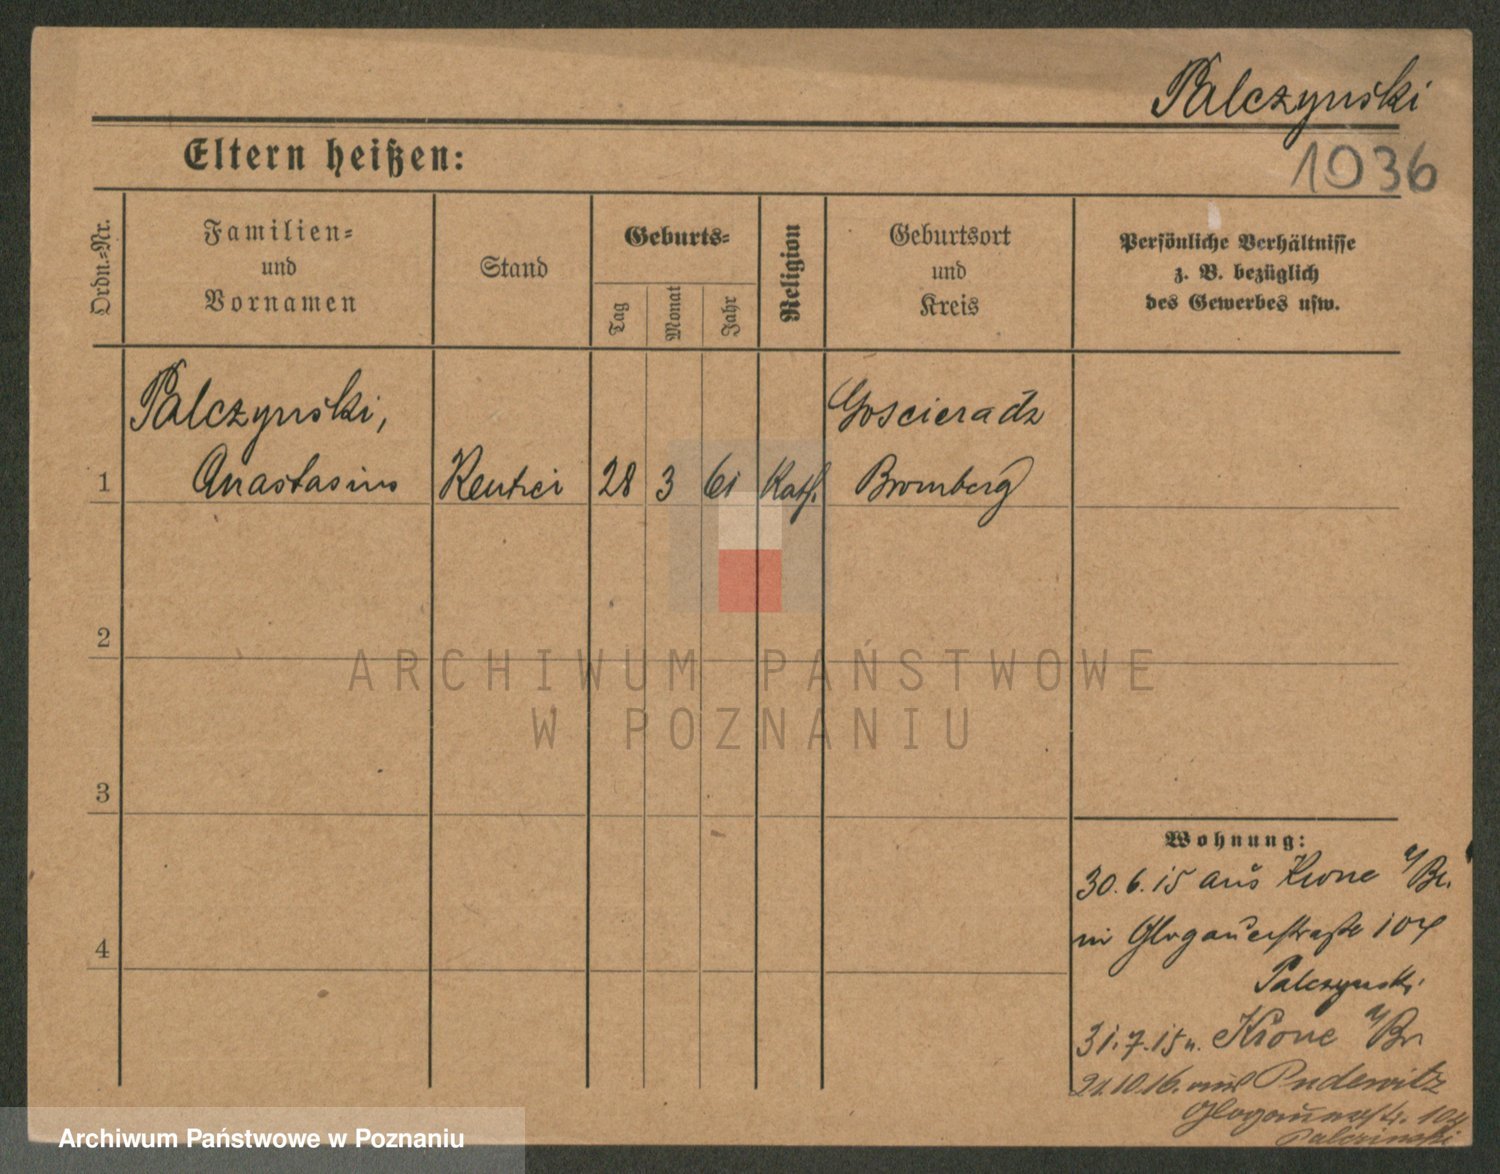 Palczynski
1036
Eltern heißen:
Ordn.=Nr.
Familien=
und
Vornamen
Stand
Geburts=
Tag
Monat
Jahr
Religion
Geburtsort
und
Kreis
Persönliche Verhältnisse
z. B. bezüglich
des Gewerbes usw.
Palczynski,
Goscieradz
1
Anastasius
28
3
61
Kath.
Bromberg
2
ARCHIWUM PAŃSTWOWE
W POZNANIU
3
Wohnung:
30.6.15 aus Krone a/Br.
in Glogauerstraße 104
Palczynski
4
31.7.15 n. Krone a/Br
21.10.16. aus Pudewitz
Glogauerstr. 104
Palczinski
Archiwum Państwowe w Poznaniu